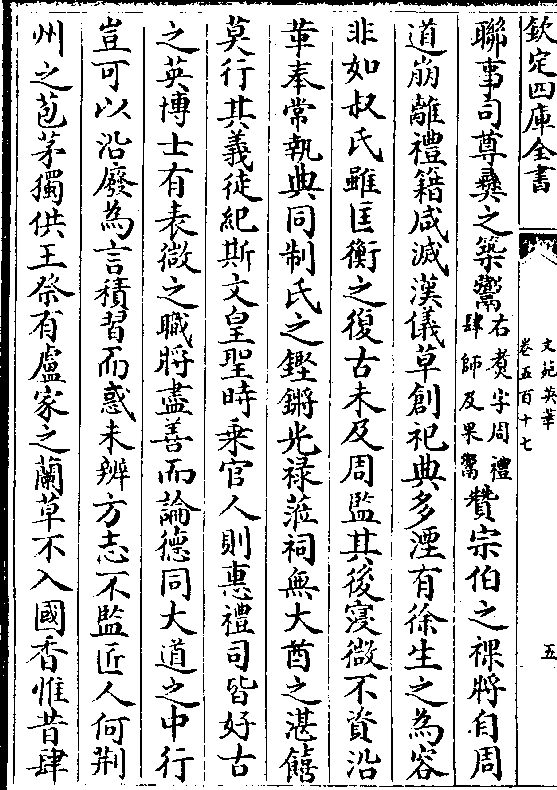 欽定四庫全書
文苑英華
卷五百十七
五
聯事司尊彝之築鬻右煑字周禮
肆師及果鬻贊宗伯之祼將自周
道崩離禮籍咸滅漢儀草創祀典多湮有徐生之為容
非如叔氏雖匡衡之復古未及周監其後寖微不資沿
革奉常執典同制氏之鏗鏘光禄蒞祠無大酋之湛饎
莫行其義徒紀斯文皇聖時乗官人則惠禮司皆好古
之英博士有表微之職將盡善而論德同大道之中行
豈可以沿廢為言積習而惑未辨方志不監匠人何荆
州之苞茅獨供王祭有盧家之蘭草不入國香惟昔肆